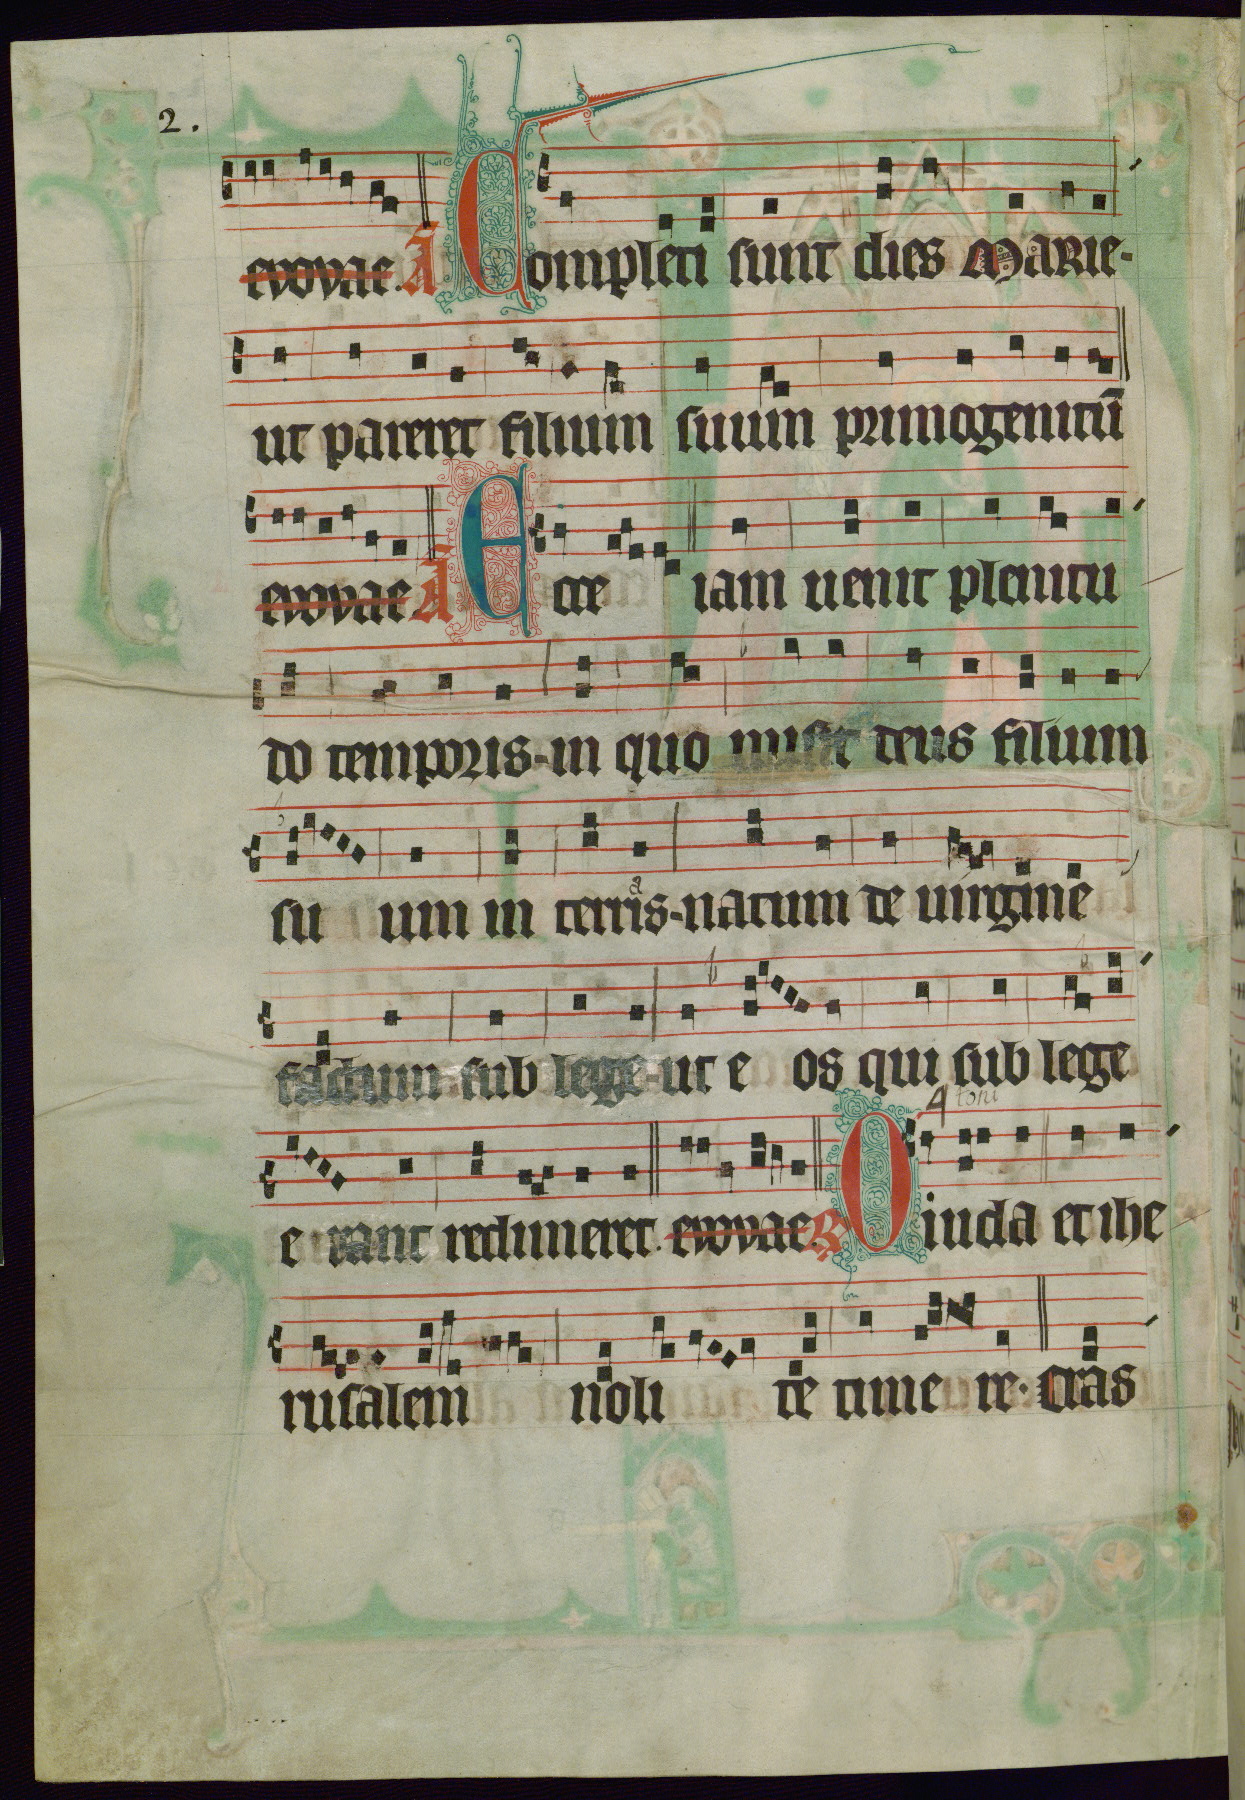 2.
evovae. A Completi sunt dies Marie-
ut pareret filium suum primogenitū
evovae A Ecce iam uenit plenitu
do temporis-in quo misit deus filium
su um in terris-natum de uirgine
a
factum sub lege-ut e os qui sub lege
4 toni
e rant redimeret. evovae. R O iuda et ihe
rusalem noli te time re. Cras